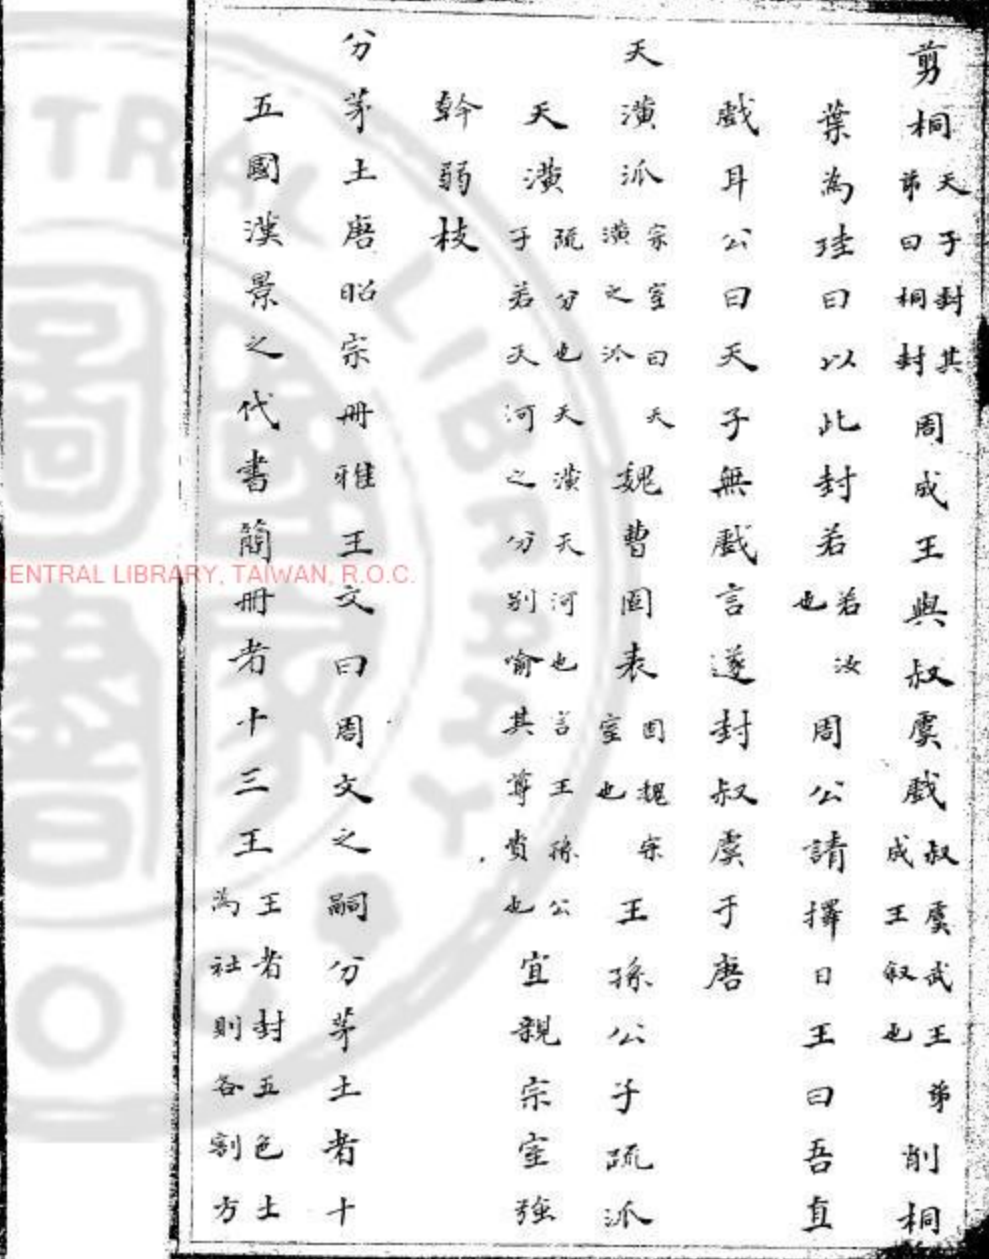 剪桐天子封其弟曰桐封周成王與叔虞戲叔虞武王弟成王叔也削桐
葉為珪曰以此封若若汝也周公請擇日王曰吾直
戲耳公曰天子無戲言遂封叔虞于唐
天潢派宗室曰天潢之派魏曹囧表囧魏宗室也王孫公子疏派
天潢疏分也天潢天河也言王孫公子若天河之分別喻其尊貴也宜親宗室強
幹弱枝
分茅土唐昭宗冊雅王文曰周文之嗣分茅土者十
五國漢景之代書簡冊者十三王王者封五色土為社則各割方
ENTRAL LIBRARY, TAIWAN, R.O.C.